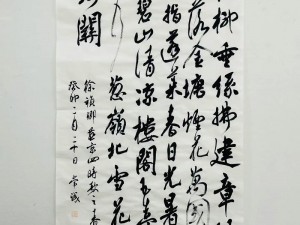 柳垂絲拂建章
落金塘煙花萬國
指蓬萊春日光暑
碧山清涼樓閣玉
蔥嶺北雪花
關
徐禎卿燕京四時歌之春
癸卯二月二十日